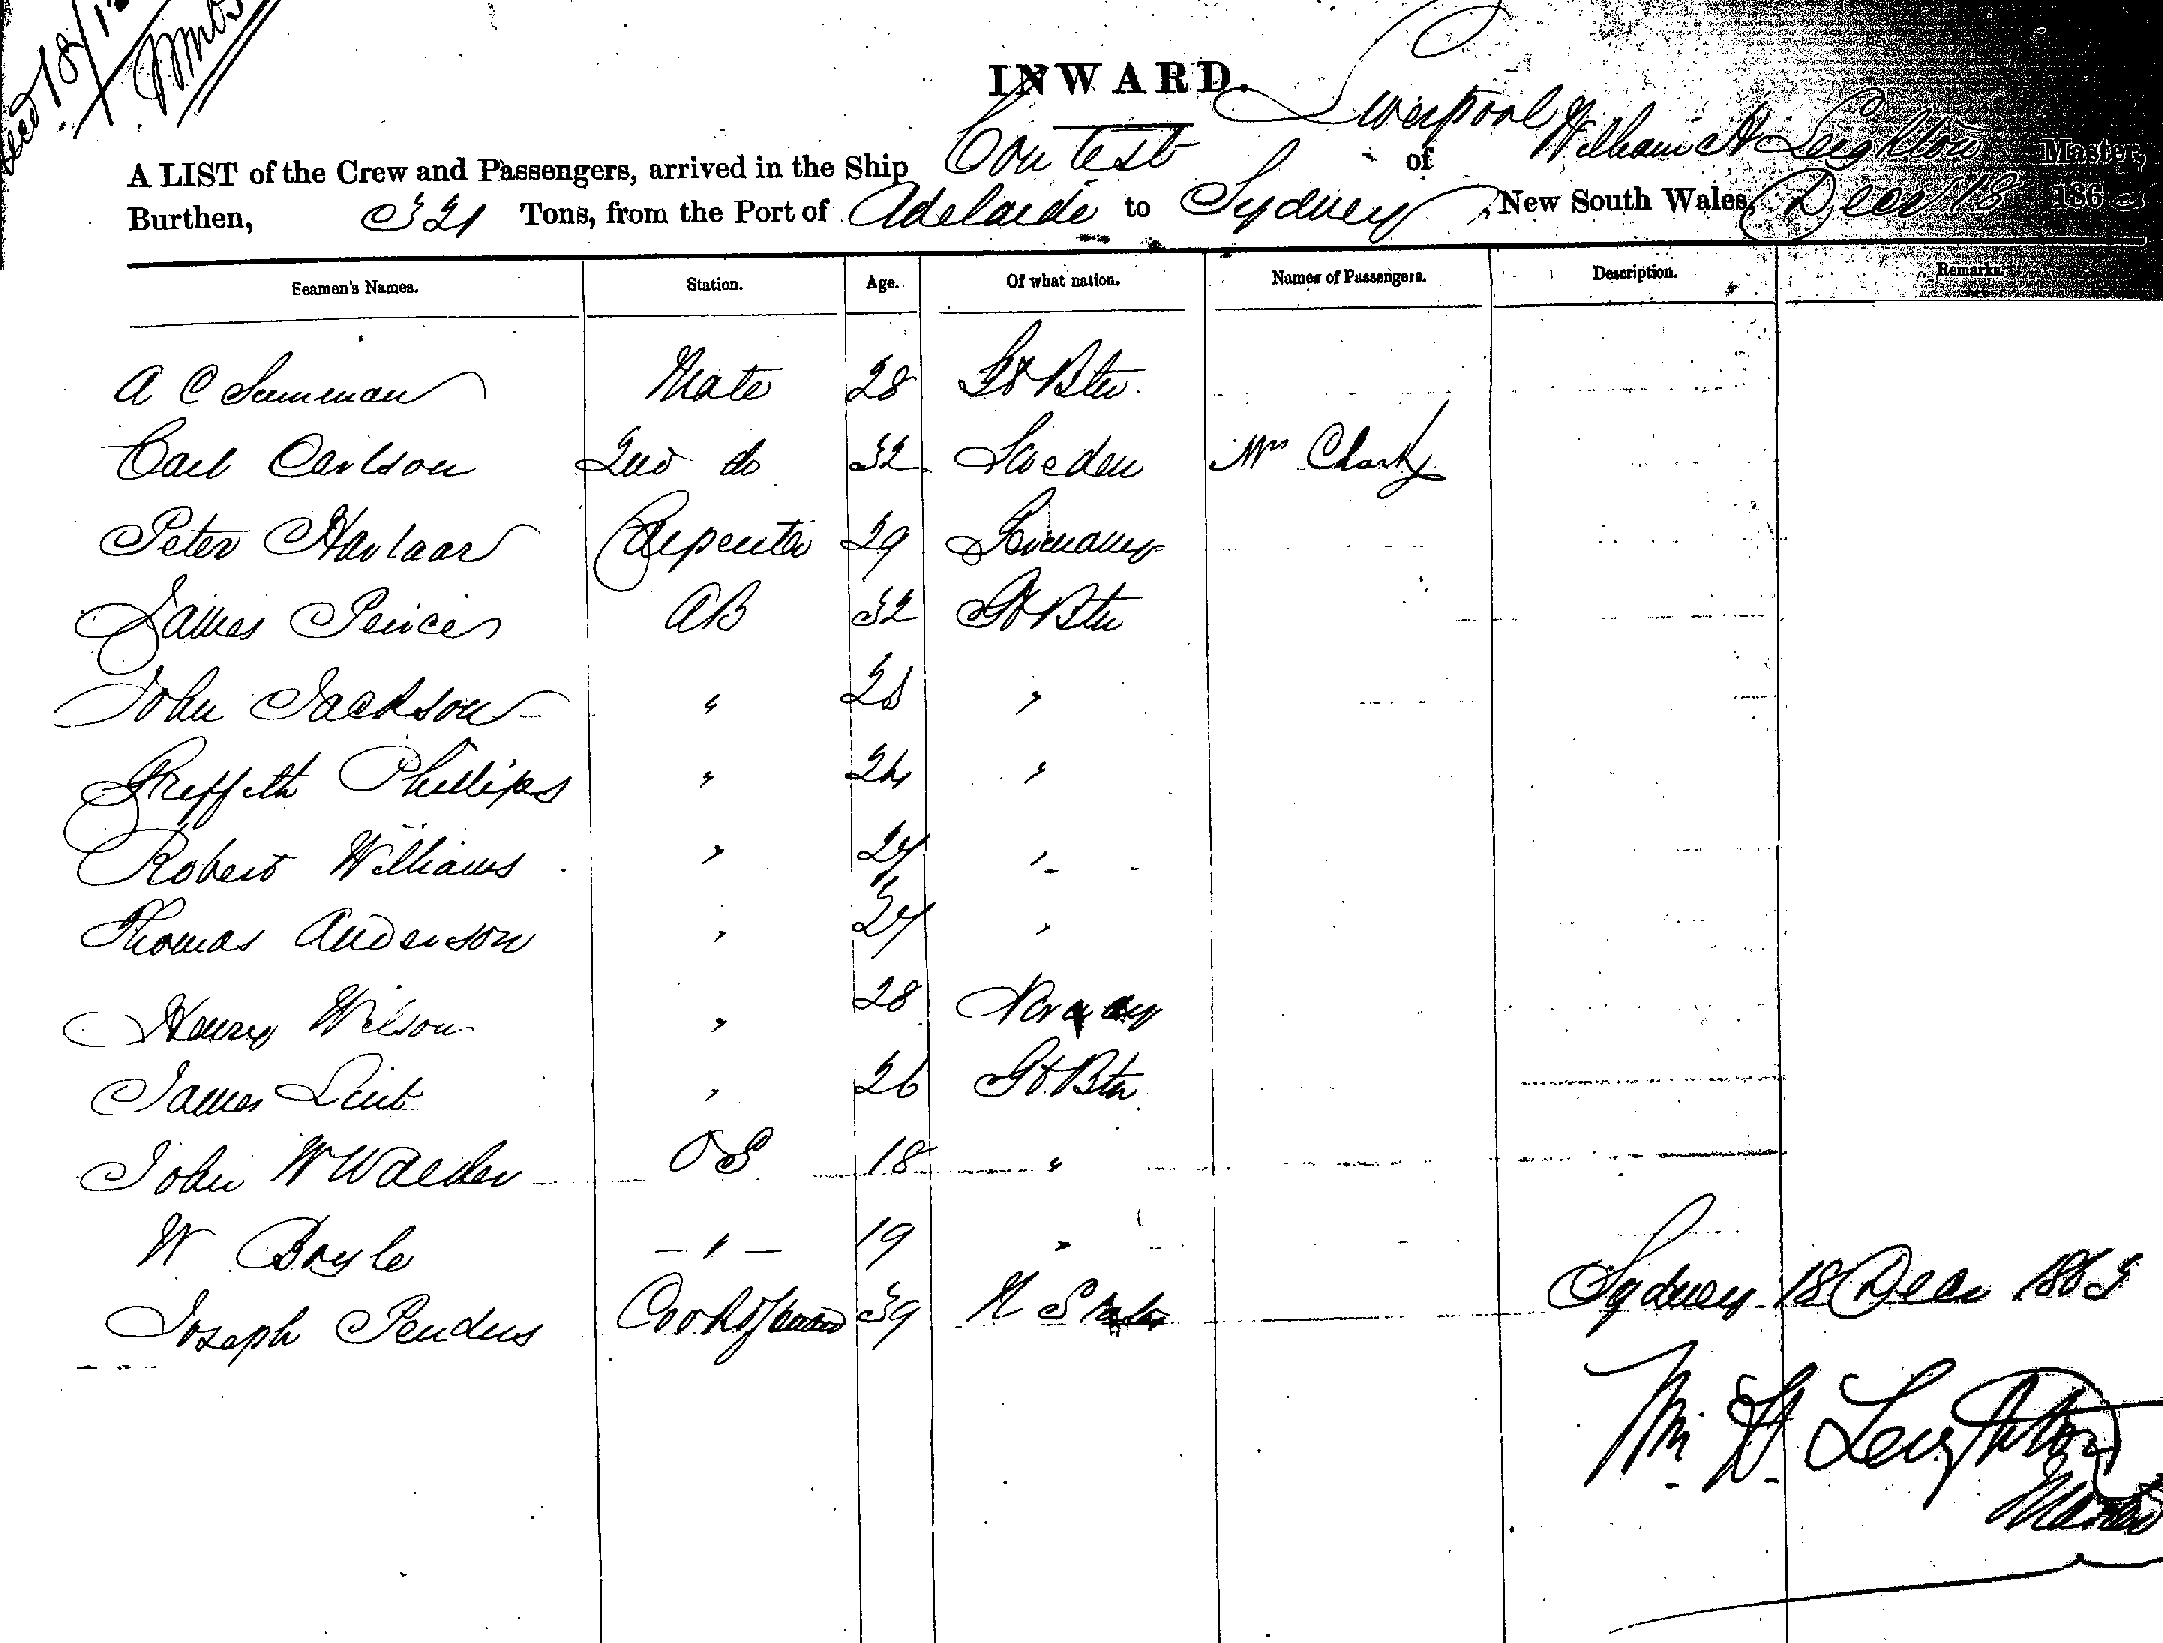 INWARD.
Liverpool
A LIST of the Crew and Passengers, arrived in the Ship Contest of William H Leighton Master,
Burthen, 321 Tons, from the Port of Adelaide to Sydney, New South Wales, Decr 18 186
Seamen's Names. Station. Age. Of what nation. Names of Passengers. Description. Remarks.
A C Mate 28 Gt Btn.
Carl Carlson 2nd do 32 Sweden Mrs Charly
Peter Havlaar Carpenter 29 Germany
James Peirce AB 32 Gt Btn
John Jackson " 28 "
Greffeth Phillips " 24 "
Robert Williams " 24 "
Thomas Anderson " 24 "
Henry Wilson " 28 Norway
James " 26 Gt Btn
John W Walker OS 18 "
W Boyle - " - 19 "
Joseph Penders Cook & Steward 39 States
Sydney 18 Decr 1863
Wm H. Leighton
Master